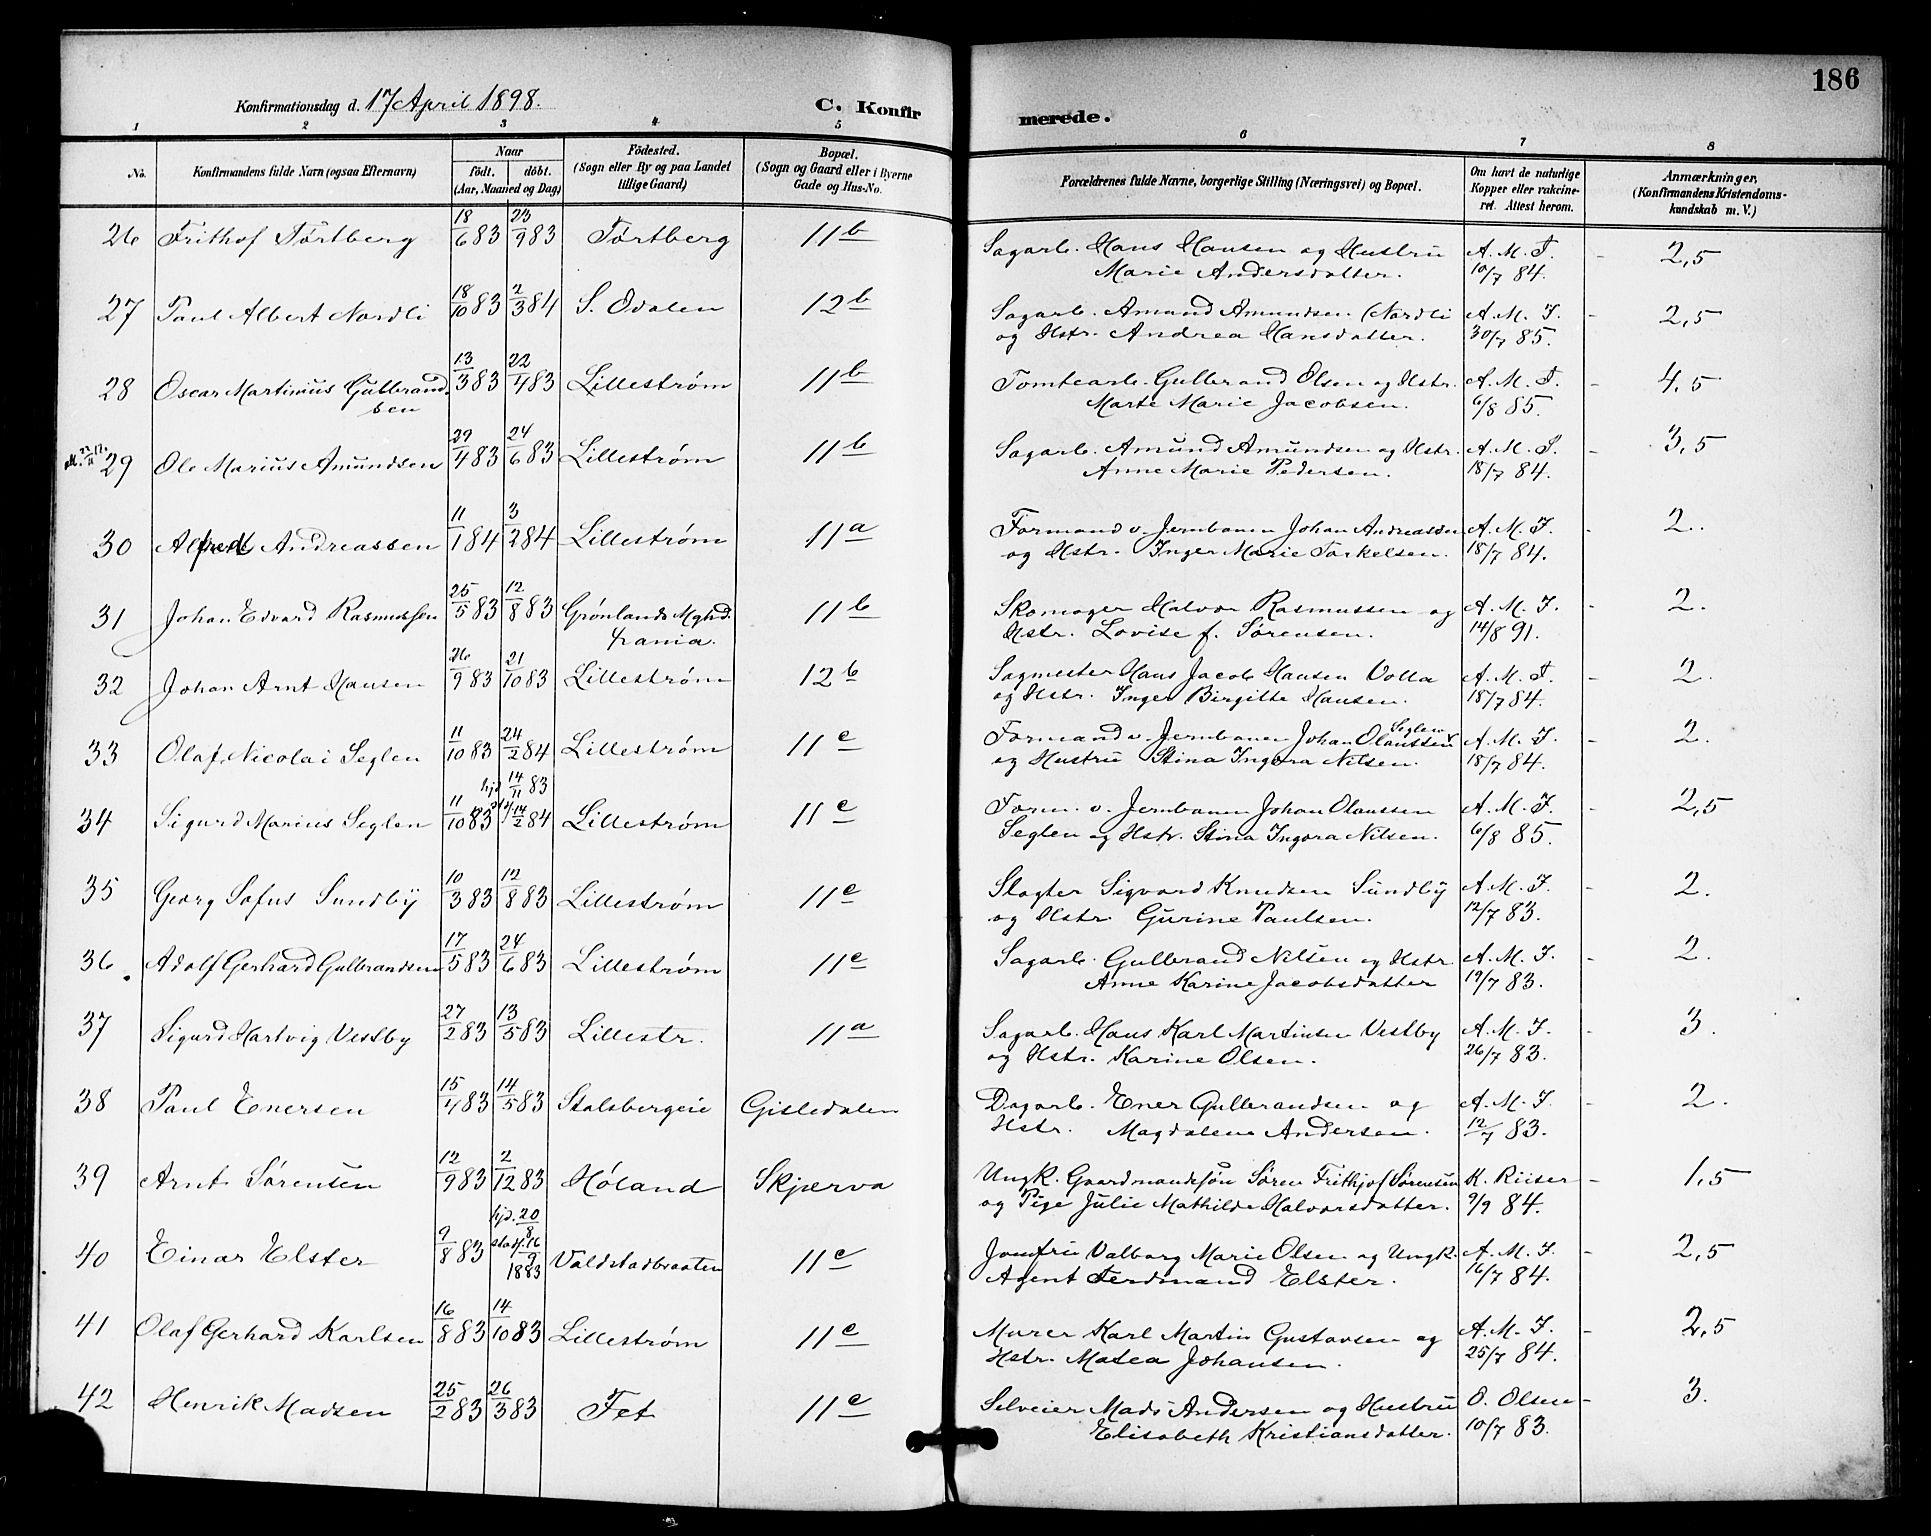 186
Konfirmationsdag d. 17 April 1898.
C. Konfirmerede.
1 2 3 4 5 6 7 8
No. Konfirmandens fulde Navn (ogsaa Efternavn) Naar født. døbt. (Aar, Maaned og Dag) Fødested. (Sogn eller By og paa Landet tillige Gaard) Bopæl. (Sogn og Gaard eller i Byerne Gade og Hus-No. Forældrenes fulde Navne, borgerlige Stilling (Næringsvei) og Bopæl. Om havt de naturlige Kopper eller vakcineret. Attest herom. Anmærkninger, (Konfirmandens Kristendomskundskab m. V.)
26 Frithof Tørtberg 18/6 83 23/9 83 Tørtberg 11b Sagarb. Hans Hansen og Hustru A. M. I. - 2,5
Marie Andersdatter. 10/7 84.
27 Paul Albert Nordli 18/10 83 2/3 84 S. Odalen 12b Sagarb. Amund Amundsen (Nordli A. M. I. - 2,5
og Hstr. Andrea Hansdatter. 30/7 85.
28 Oscar Martinius Gulbrand 13/3 83 22/4 83 Lillestrøm 11b Tomtearb. Gulbrand Olsen og Hstr. A. M. I. - 4,5
sen Marte Marie Jacobsen. 6/8 85.
29 Ole Marius Amundsen 29/4 83 24/6 83 Lillestrøm 11b Sagarb. Amund Amundsen og Hstr. A. M. I. - 3,5
Anne Marie Pedersen. 18/7 84.
30 Alfred Andreassen 11/1 84 3/2 84 Lillestrøm 11a Formand v. Jernbanen Johan Andreassen A. M. I. - 2.
og Hstr. Inger Marie Torkelsen. 18/7 84.
31 Johan Edvard Rasmussen 25/5 83 12/8 83 Grønlands Mghd. 11b Skomager Halvor Rasmussen og A. M. I. - 2.
Krania. Hstr. Lovise f. Sørensen. 14/8 91.
32 Johan Arnt Hansen 26/9 83 21/10 83 Lillestrøm 12b Sagmester Hans Jacob Hansen Volla A. M. I. - 2.
og Hstr. Inger Birgitte Hansen. 18/7 84.
33 Olaf Nicolai Seglen 11/10 83 24/2 84 Lillestrøm 11c Formand v. Jernbanen Johan Olaussen Seglen A. M. I. - 2.
og Hustru Stina Ingora Nilsen. 18/7 84.
hjd. 14/11 83
34 Sigurd Marius Seglen 11/10 83 st. 14/2 84 Lillestrøm 11c Form. v. Jernbanen Johan Olaussen A. M. I. - 2,5
Seglen og Hstr. Stina Ingora Nilsen. 6/8 85.
35 Georg Sofus Sundby 10/3 83 12/8 83 Lillestrøm 11c Slagter Sigvard Knudsen Sundby A. M. I. - 2.
og Hstr. Gurine Paulsen. 12/7 83.
36 Adolf Gerhard Gulbrandsen 17/5 83 24/6 83 Lillestrøm 11c Sagarb. Gulbrand Nilsen og Hstr. A. M. I. - 2.
Anne Karine Jacobsdatter 19/7 83.
37 Sigurd Hartvig Vestby 27/2 83 13/5 83 Lillestr. 11a Sagarb. Hans Karl Martinsen Vestby A. M. I. - 3.
og Hstr. Karine Olsen. 26/7 83.
38 Paul Enersen 15/4 83 14/5 83 Stalsbergeie Gisledalen Dagarb. Ener Gulbrandsen og A. M. I. - 2.
Hstr. Magdalene Andersen. 12/7 83.
39 Arnt Sørensen 12/9 83 2/12 83 Høland Skjærva Ungk. Gaardmandsøn Søren Frithjof Sørensen K. Riiser - 1,5
og Pige Julie Mathilde Halvorsdatter. 9/9 84.
40 Einar Elster 9/8 83 hjd. 20/8 stad. 16/9 1883 Voldstadbraaten 11c Jomfru Valborg Marie Olsen og Ungk. A. M. I. - 2,5
Agent Ferdinand Elster. 16/7 84.
41 Olaf Gerhard Karlsen 16/8 83 14/10 83 Lillestrøm 11c Murer Karl Martin Gustavsen og A. M. I. - 2,5
Hstr. Matea Johansen. 25/7 84.
42 Henrik Madsen 25/2 83 26/3 83 Fet 11c Selveier Mads Andersen og Hustru O. Olsen - 3.
Elisabeth Kristiansdatter. 10/7 83.